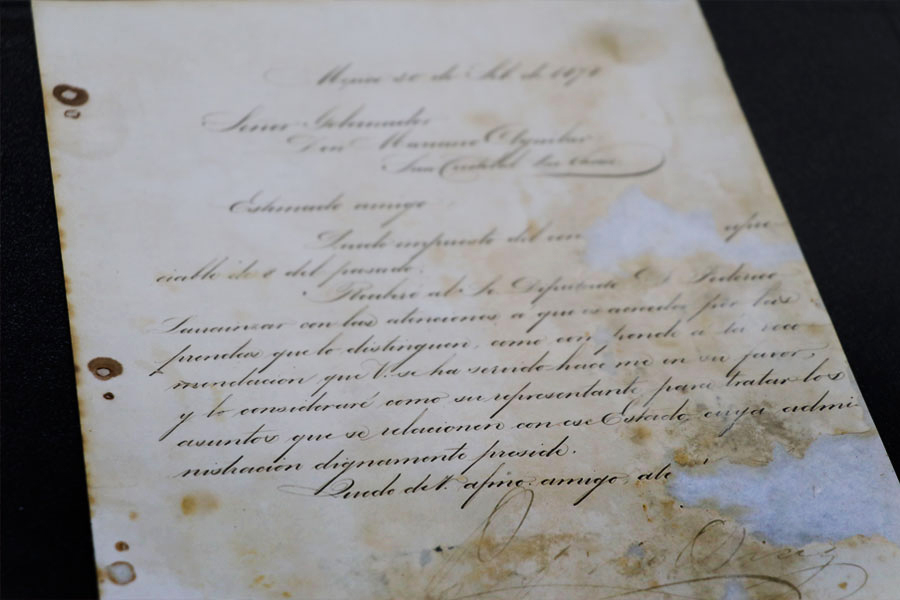 Señor Gobernador
Don Mariano
San Cristobal
Estimado amigo
Quedo impuesto del con apre
ciable de 8 del pasado.
Recibiré al Sr. Diputado D.
con las atenciones a que es acreedor por las
prendas que lo distinguen, como corresponde a la reco
mendacion que V. se ha servido hacerme en su favor,
y lo consideraré como su representante para tratar los
asuntos que se relacionen con ese Estado cuya admi-
nistracion dignamente preside.
Quedo de V. afmo. amigo
Diaz